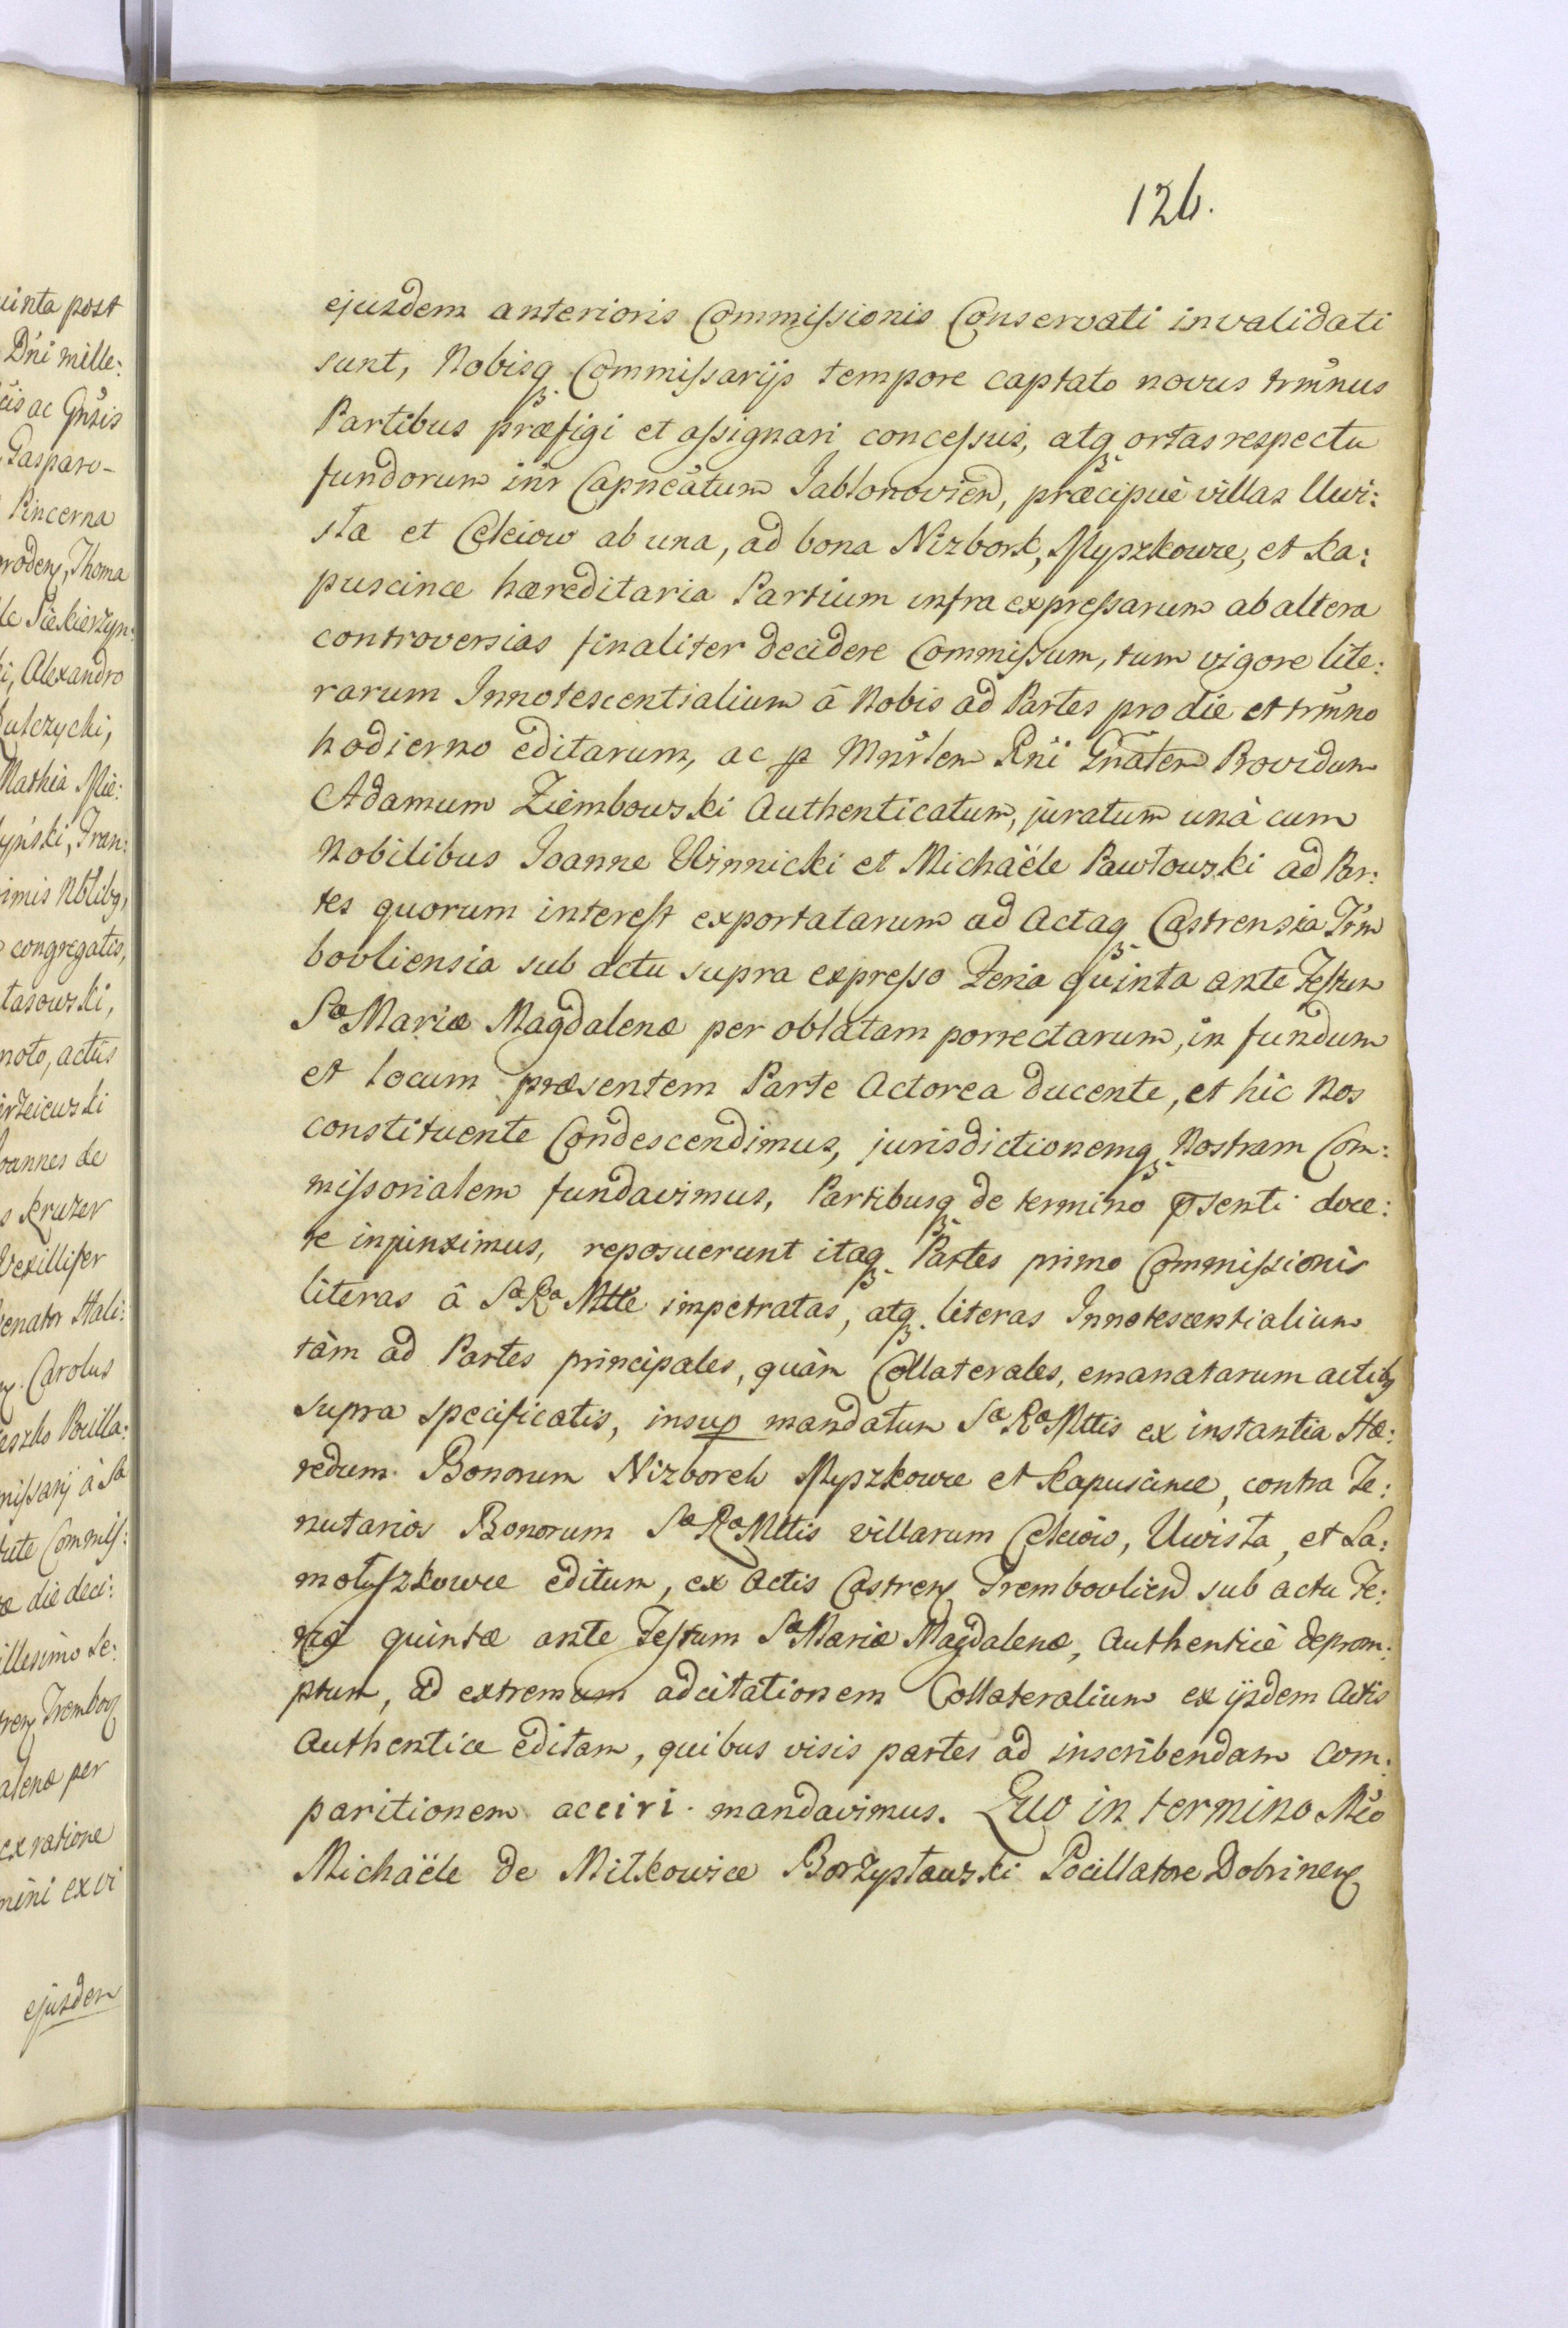 126.
ejusdem anterioris Commissionis Conservati invalidati
sunt, Nobisq3. Commissarijs tempore captato novus trmnus
Partibus præfigi et assignari concessus, atq3. ortas respectu
fundorum intr Capneatum Jablonovien, præcipuè villas Uwi:
sta et Celeiow ab una, ad bona Nizbork, Myszkowce, et Ka:
puscince hæreditaria Partium infra expressarum ab altera
controversias finaliter decidere Commissum, tum vigore lite:
rarum Innotescentialium â Nobis ad Partes pro die et trmno
hodierno editarum, ac p Mnrlem Rni Gnalem Providum
Adamum Ziembowski Authenticatum, juratum unà cum
Nobilibus Joanne Winnicki et Michaële Pawłowski ad Par:
tes quorum interest exportatarum ad Actaq3. Castrensia Trm
bovliensia sub actu supra expresso Feria quinta ante Festum
Sæ Mariæ Magdalenæ per oblatam porrectarum, in fundum
et locum præsentem Parte Actorea ducente, et hic Nos
constituente Condescendimus, jurisdictionemq3. Nostram Com:
missorialem fundavimus, Partibusq3. de termino psenti doce:
re injunximus, reposuerunt itaq3. Partes primo Commissionis
literas â Sa Ra Mtte impetratas, atq3. literas Innotescentialium
tàm ad Partes principales, quàm Collaterales, emanatarum actibq
supra specificatis, insup mandatum Sæ Ræ Mttis ex instantia Hæ:
redum Bonorum Nizboreh Myszkowce et Kapuscince, contra Te:
nutarios Bonorum Sæ Ræ Mttis villarum Celeiow, Uwista, et Sa:
motyszkowce editum, ex Actis Castren Trembovlien sub actu Fe:
riæ quintæ ante Festum Sæ Mariæ Magdalenæ, Authenticè deprom:
ptum, ad extremum adcitationem Collateralium ex ijsdem Actis
Authentice editam, quibus visis partes ad inscribendam com:
paritionem acciri mandavimus. Quo in termino Mco
Michaële de Milkowice Borzysławski Pocillatore Dobrinen
uinta post
Dni mille:
cis ac Gnsis
Gasparo-
Pincerna
roden, Thoma
le Siekierzyn:
i, Alexandro
ulczycki,
Mathia Mie:
yński, Fran:
imis Nblibq,
congregatis,
tasowski,
noto, actis
oannes de
s Kruzer
Vexillifer
enator Hali:
Carolus
aszko Pocilla:
missarij à Sa
Commiss:
æ die deci:
illesimo Se:
ren Trembov
alenæ per
ex ratione
mini ex vi
ejusdem